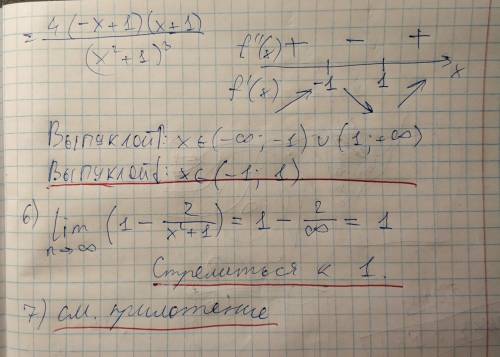 = 4(-x+1)(x+1) / (x²+1)³
f''(x) + - +
-1 1 x
f'(x)
Выпуклой: x∈(-∞; -1) ∪ (1; +∞)
Выпуклой: x∈(-1; 1)
6) lim n→∞ (1 - 2/(x²+1)) = 1 - 2/∞ = 1
Стремиться к 1.
7) см. приложение